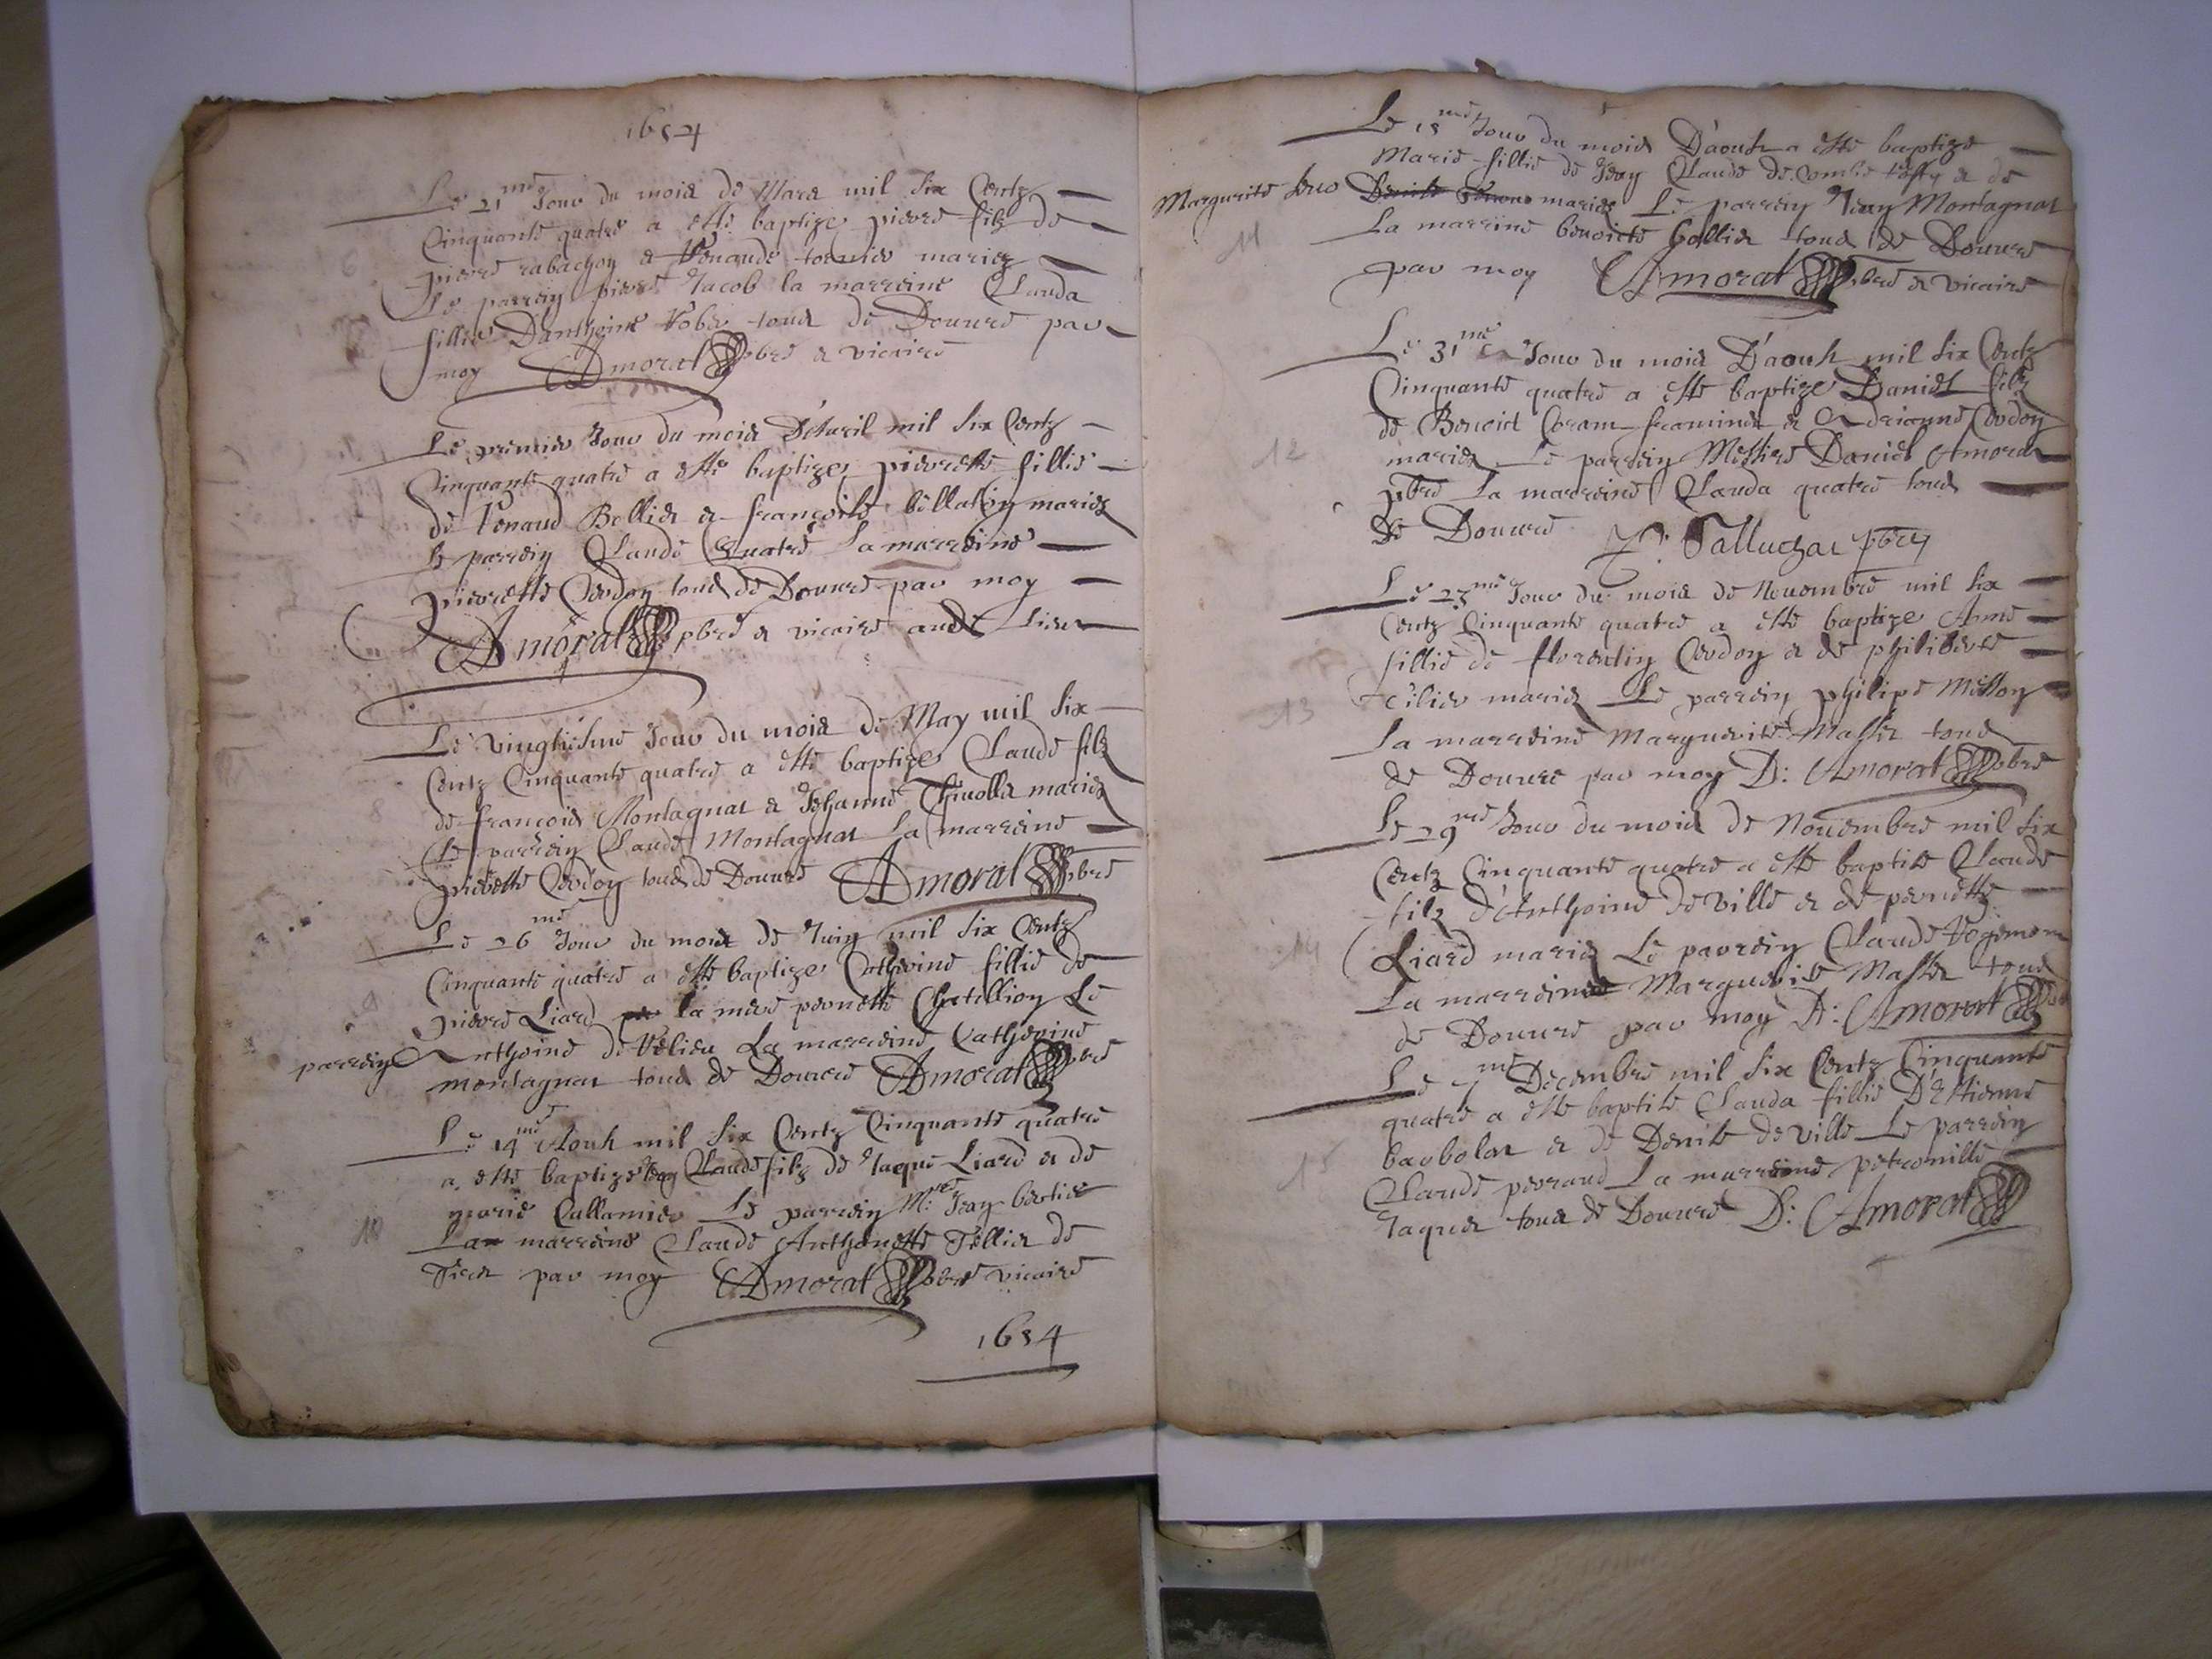 1654
Le 21me Jour du mois de Mars mil six Centz
Cinquante quatre a esté baptizé pierre filz de
pierre rabachon & tournier mariez
Le parrein pierre Jacob la marreine Clauda
fillie D'anthoine tous de Douure par
moy Amorat pbre & vicaire
Le premier Jour du mois D'Auril mil six Centz
Cinquante quatre a esté baptizé pierrette fillie
de renaud Bollier & françoise mariez
le parrein Claude Quatre La marreine
pierrette Cordon tous de Douure par moy
Amorat pbre & vicaire lieu
Le vingtiesme Jour du mois de May mil six
Centz Cinquante quatre a esté baptizé Claude filz
de francois Montagnat & Jehanne mariez
Le parrein Claude Montagnat La marreine
pierrette Cordon tous de Douure Amorat pbre
Le 26me Jour du mois de Juin mil six Centz
Cinquante quatre a esté baptizé Catherine fillie de
9
pierre Liard la mere pernette Chatillion Le
parrein Anthoine de Velieu La marreine Catherine
montagnat tous de Douure Amorat pbre
Le 14me Aoust mil six Centz Cinquante quatre
a esté baptizé Claude filz de Jaque Liard & de
marie Callamier Le parrein Mre Jean bertier
10
La marreine Claude Anthonette Tellier de
par moy Amorat pbre vicaire
1654
Le 15me Jour du mois D'aoust a esté baptizé
Marie fillie de Jean Claude de & de
Marguerite mariez Le parrein Jean Montagnat
11
La marrine benoicte bollier tous de Douure
par moy Amorat pbre & vicaire
Le 31me Jour du mois D'aoust mil six Centz
Cinquante quatre a esté baptizé Daniel filz
de Benoid & Adrianne Cordon
12
mariez Le parrein Messire Daniel Amorat
pbre La marreine Clauda quatre tous
de Douure Palluat pbre
Le 23me Jour du mois de Nouembre mil six
Centz Cinquante quatre a esté baptizé Anne
fillie de florentin Cordon & de philiberte
13
mariez Le parrein philipe Misson
La marreine Marguerite Massier tous
de Douure par moy D: Amorat pbre
Le 29me Jour du mois de Nouembre mil six
Centz Cinquante quatre a esté baptisé Claude
filz d'Anthoine de ville & de pernette
14
Liard mariez Le parrein Claude
La marreine Marguerite Massier tous
de Douure par moy D: Amorat
Le 7me Decembre mil six Centz Cinquante
quatre a esté baptisé Clauda fillie D'Estienne
barbolat & de Denise de ville Le parrein
15
Claude perraud La marreine petronille
Jaquet tous de Douure D: Amorat